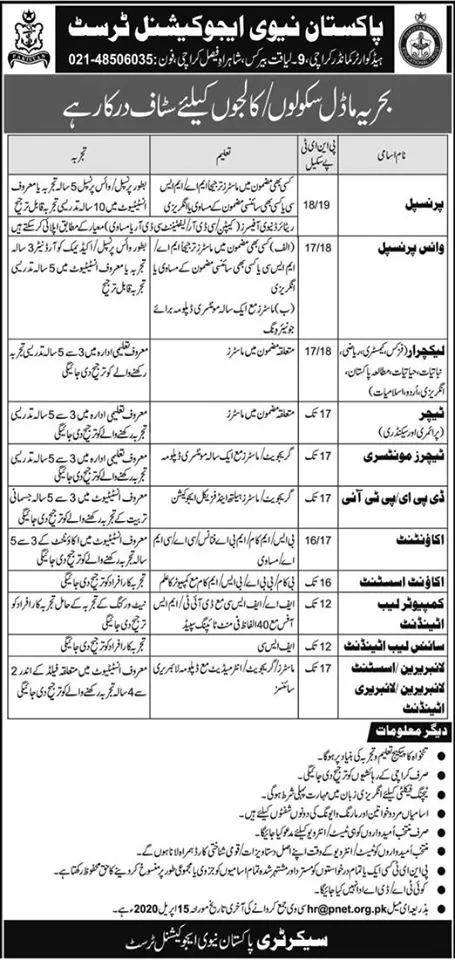 پاکستان نیوی ایجوکیشنل ٹرسٹ
ہیڈ کوارٹر کمانڈر کراچی، 9۔لیاقت بیرکس، شاہراہ فیصل کراچی، فون: 021-48506035
بحریہ ماڈل سکولوں/کالجوں کیلئے سٹاف درکار ہے
نام اسامی
پی این ای ٹی پے سکیل
تعلیم
تجربہ
پرنسپل
18/19
کسی بھی مضمون میں ماسٹرز ترجیحاً ایم اے/ایم ایس
سی یا کسی بھی سائنسی مضمون کے مساوی یا انگریزی
بطور پرنسپل/وائس پرنسپل 5 سالہ تجربہ یا معروف
انسٹیٹیوٹ میں 10 سالہ تدریسی تجربہ قابل ترجیح
ریٹائرڈ نیوی آفیسرز (کیپٹن/کمانڈر/لیفٹیننٹ کمانڈر یا مساوی) معیار کے مطابق اپلائی کر سکتے ہیں
وائس پرنسپل
17/18
(الف) کسی بھی مضمون میں ماسٹرز ترجیحاً ایم اے/
ایم ایس سی یا کسی بھی سائنسی مضمون کے مساوی یا
انگریزی
(ب) ماسٹرز مع ایک سالہ مونٹسری ڈپلومہ برائے
جونیئر ونگ
بطور وائس پرنسپل/اکیڈیمک کوآرڈینیٹر 3 سالہ
تجربہ یا معروف انسٹیٹیوٹ میں 5 سالہ تدریسی
تجربہ قابل ترجیح
لیکچرار (فزکس، کیمسٹری، ریاضی،
نباتیات، حیاتیات، مطالعہ پاکستان،
انگریزی، اُردو، اسلامیات)
17/18
متعلقہ مضمون میں ماسٹرز
معروف تعلیمی ادارہ میں 3 سے 5 سالہ تدریسی تجربہ
رکھنے والے کو ترجیح دی جائیگی
ٹیچر
(پرائمری اور سیکنڈری)
17 تک
متعلقہ مضمون میں ماسٹرز
معروف تعلیمی ادارہ میں 3 سے 5 سالہ تدریسی تجربہ
رکھنے والے کو ترجیح دی جائیگی
ٹیچرز مونٹسری
17 تک
گریجویٹ/ماسٹرز مع ایک سالہ مونٹسری ڈپلومہ
معروف تعلیمی ادارہ میں 3 سے 5 سالہ تدریسی تجربہ
رکھنے والے کو ترجیح دی جائیگی
ڈی پی ای/پی ٹی آئی
17 تک
گریجویٹ/ماسٹرز ہیلتھ اینڈ فزیکل ایجوکیشن
معروف انسٹیٹیوٹ میں 3 سے 5 سالہ جسمانی
تربیت کے تجربہ رکھنے والے کو ترجیح دی جائیگی
اکاؤنٹنٹ
16/17
بی ایس/ایم کام/ایم بی اے فنانس/سی اے/سی ایم
اے/مساوی
معروف انسٹیٹیوٹ میں اکاؤنٹنٹ کے 3 سے 5
سالہ تجربہ کار افراد کو ترجیح دی جائیگی
اکاؤنٹ اسسٹنٹ
16 تک
بی کام/بی بی اے/بی ایس/ایم کام مع کمپیوٹر کا علم
تجربہ کار افراد کو ترجیح دی جائیگی
کمپیوٹر لیب
اٹینڈنٹ
12 تک
ایف اے/ایف ایس سی مع ڈی آئی ٹی/ایم ایس
آفس مع 40 الفاظ فی منٹ ٹائپنگ سپیڈ
نیٹ ورکنگ کے تجربہ کے حامل تجربہ کار افراد کو
ترجیح دی جائیگی
سائنس لیب اٹینڈنٹ
12 تک
ایف ایس سی
تجربہ کار افراد کو ترجیح دی جائیگی
لائبریرین/اسسٹنٹ
لائبریرین/لائبریری
اٹینڈنٹ
17 تک
ماسٹرز/گریجویٹ/انٹرمیڈیٹ مع ڈپلومہ لائبریری
سائنسز
معروف انسٹیٹیوٹ میں متعلقہ فیلڈ کے اندر 2
سے 4 سالہ تجربہ رکھنے والے کو ترجیح دی جائیگی
دیگر معلومات
تنخواہ کا پیکیج تعلیم و تجربہ کی بنیاد پر ہوگا۔
صرف کراچی کے رہائشیوں کو ترجیح دی جائیگی۔
ٹیچنگ فیکلٹی کیلئے انگریزی زبان میں مہارت پہلی شرط ہوگی۔
اسامیاں مرد و خواتین اور مارننگ و ایوننگ کی دونوں شفٹوں کیلئے ہیں۔
صرف منتخب اُمیدواروں کو ہی ٹیسٹ/انٹرویو کیلئے مدعو کیا جائیگا۔
منتخب اُمیدواروں کو ٹیسٹ/انٹرویو کے وقت اپنے اصل دستاویزات/قومی شناختی کارڈ ہمراہ لانا ہوں گے۔
پی این ای ٹی کسی ایک یا تمام درخواستوں کو مسترد اور مشتہر شدہ تمام اسامیوں کو جزوی یا مجموعی طور پر منسوخ کر دینے کا حق محفوظ رکھتا ہے۔
کوئی ٹی اے/ڈی اے ادا نہیں کیا جائیگا۔
بذریعہ ای میل hr@pnet.org.pk سی وی جمع کروانے کی آخری تاریخ مورخہ 15 اپریل 2020ء ہے۔
سیکرٹری پاکستان نیوی ایجوکیشنل ٹرسٹ